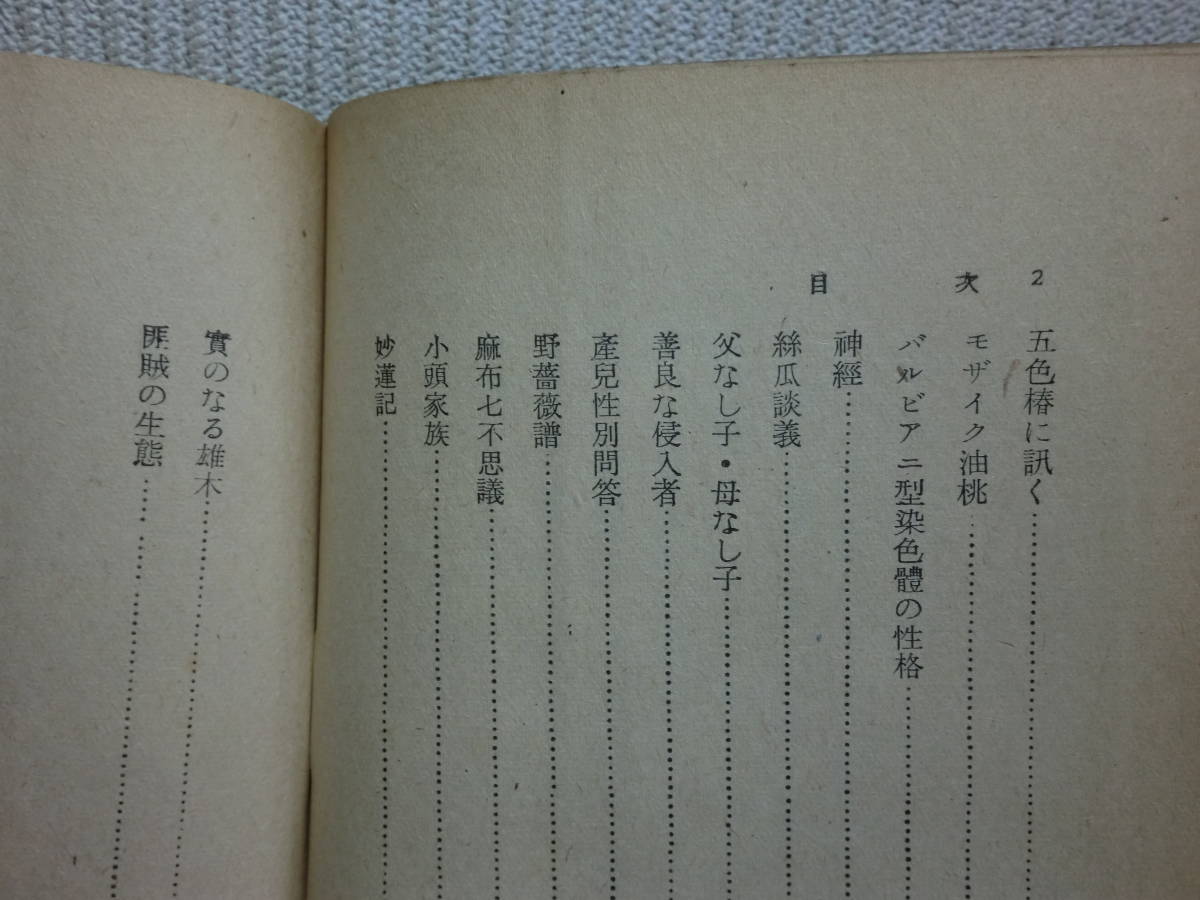 2 次 目
五色椿に訊く
モザイク油桃
バルビアニ型染色體の性格
神經
絲瓜談義
父なし子・母なし子
善良な侵入者
產兒性別問答
野薔薇譜
麻布七不思議
小頭家族
妙蓮記
實のなる雄木
匪賊の生態